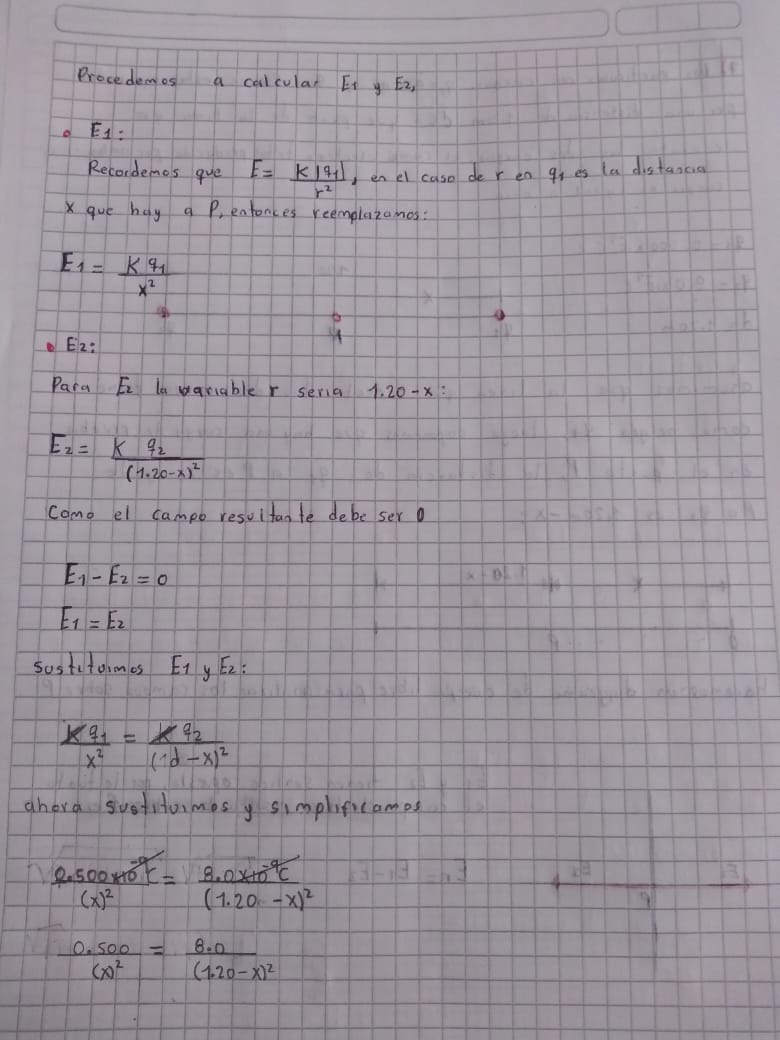 Procedemos a calcular E1 y E2,
E1:
Recordemos que E = K|q1| / r², en el caso de r en q1 es la distancia
x que hay a P, entonces reemplazamos:
E1 = K q1 / x²
E2:
Para E2 la variable r seria 1.20-x:
E2 = K q2 / (1.20-x)²
Como el campo resultante debe ser 0
E1 - E2 = 0
E1 = E2
sustituimos E1 y E2:
K q1 / x² = K q2 / (d-x)²
ahora sustituimos y simplificamos
0.500x10⁻⁹C / (x)² = 8.0x10⁻⁹C / (1.20 - x)²
0.500 / (x)² = 8.0 / (1.20-x)²